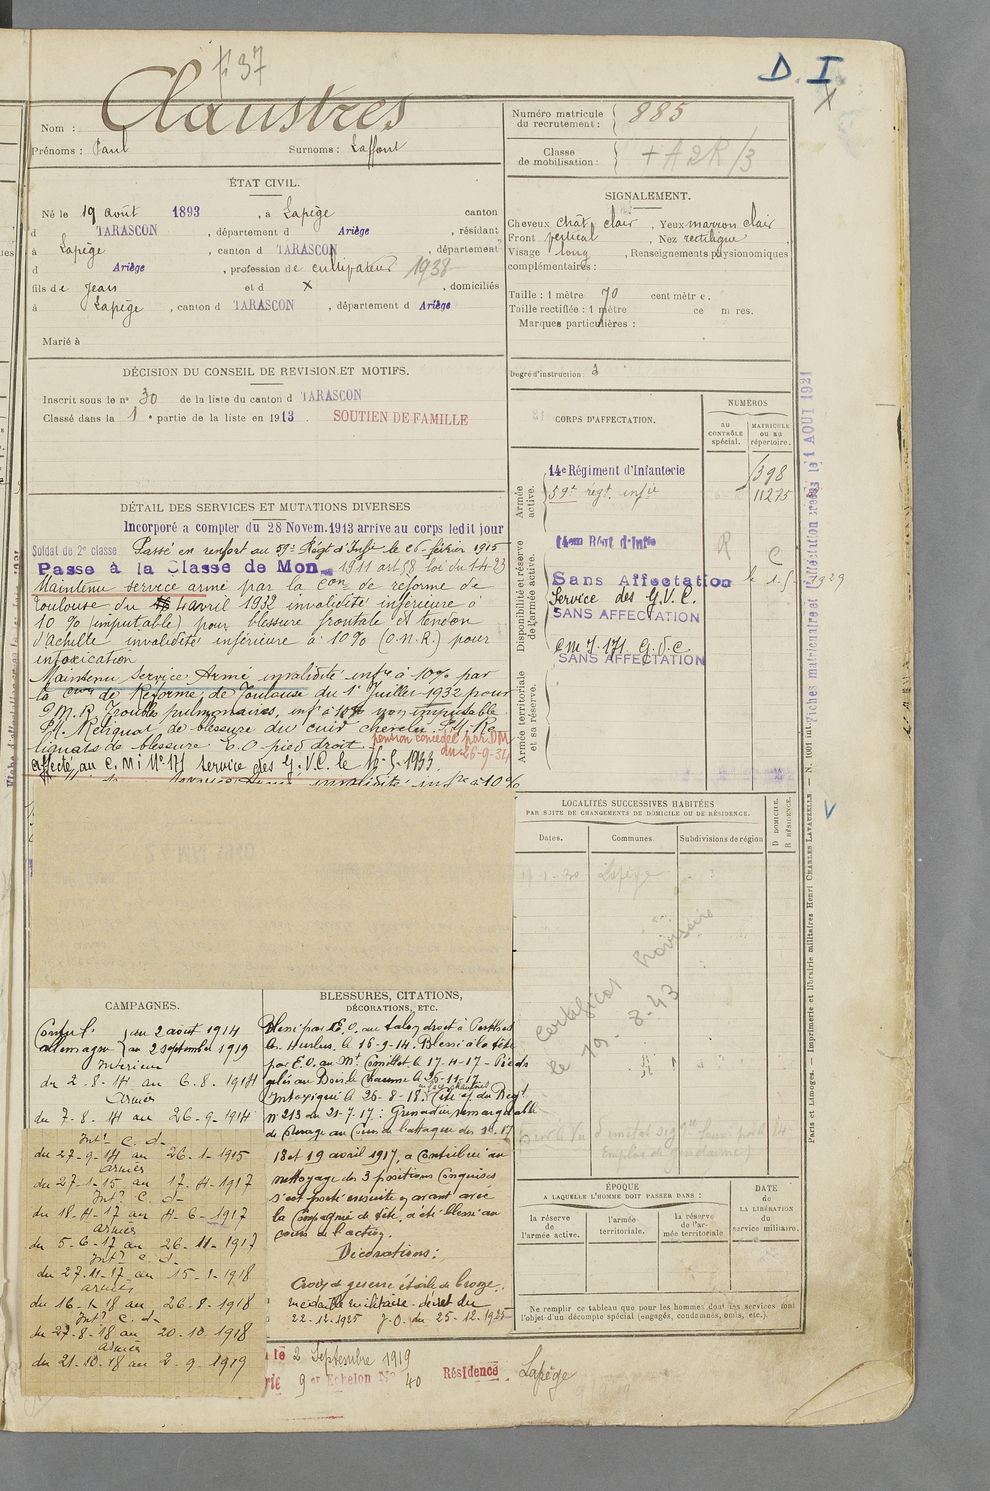 fi 37
D. I
Claustres
Nom :
Prénoms : Paul Surnoms : Laffont
Numéro matricule du recrutement : 885
Classe de mobilisation : + A 2 R /3
ÉTAT CIVIL.
Né le 19 août 1893, à Lapège canton
d TARASCON, département d Ariège, résidant
à Lapège, canton d TARASCON, département
d Ariège, profession de cultivateur 1938
fils de Jean et d X, domiciliés
à Lapège, canton d TARASCON, département d Ariège
Marié à
SIGNALEMENT.
Cheveux chât clair, Yeux marron clair
Front vertical, Nez rectiligne
Visage long, Renseignements physionomiques
complémentaires :
Taille : 1 mètre 70 centimètre.
Taille rectifiée : 1 mètre
Marques particulières :
Degré d'instruction : 3
DÉCISION DU CONSEIL DE REVISION ET MOTIFS.
Inscrit sous le n° 30 de la liste du canton d TARASCON
Classé dans la 1e partie de la liste en 1913 SOUTIEN DE FAMILLE
DÉTAIL DES SERVICES ET MUTATIONS DIVERSES
Incorporé a compter du 28 Novem. 1913 arrive au corps ledit jour
Soldat de 2e classe Passé en renfort au 59e Régt d'Infie le 26 février 1915
Passe à la Classe de Mon. 1911 art 58 loi du 1-4-23
Maintenu service armé par la Con de réforme de
Toulouse du 4 avril 1932 invalidité inférieure à
10 % (imputable) pour blessure frontale et tendon
d'Achille invalidité inférieure à 10% (O.N.R.) pour
intoxication
Maintenu Service Armé invalidité infre à 10% par
la Con de Réforme, de Toulouse du 1er Juillet 1932 pour
P.M.R. Troubles pulmonaires, infre à 10% non imputable
P.M. Reliquat de blessure du cuir chevelu P.M. Re
liquats de blessure E.O pied droit pension concédée par DM
du 26-9-34
affecté au C.M.I N° 171 service des G.V.C. le 15-5-1933.
CORPS D'AFFECTATION.
NUMÉROS
AU CONTRÔLE spécial.
MATRICULE OU AU répertoire.
Armée active.
14e Régiment d'Infanterie 1398
59e régt. infie 11275
Disponibilité et réserve de l'armée active.
14em Régt d'Infie R C
Sans Affectation le 1-5-1929
Service des G.V.C.
SANS AFFECTATION
CM I. 171 G.V.C
SANS AFFECTATION
Armée territoriale et sa réserve.
LOCALITÉS SUCCESSIVES HABITÉES
PAR SUITE DE CHANGEMENTS DE DOMICILE OU DE RÉSIDENCE.
Dates. Communes. Subdivisions de région D DOMICILE. R RÉSIDENCE.
Lapège
Certificat provisoire
le 19-8-43
CAMPAGNES.
Contre l'Allemagne
du 2 août 1914
au 2 septembre 1919
Intérieur
du 2-8-14 au 6-8-1914
Armées
du 7-8-14 au 26-9-1914
Intr C. d-
du 27-9-14 au 26-1-1915
armées
du 27-1-15 au 17-4-1917
Intr C. d-
du 18-4-17 au 4-6-1917
armées
du 5-6-17 au 26-11-1917
Intr C. d-
du 27-11-17 au 15-1-1918
armées
du 16-1-18 au 26-8-1918
Intr C. d-
du 27-8-18 au 20-10-1918
armées
du 21-10-18 au 2-9-1919
BLESSURES, CITATIONS,
DÉCORATIONS, ETC.
Blessé par E.O. au talon droit à Perthes
les Hurlus, le 16-9-14. Blessé à la tête
par E.O. au Mt Cornillet le 17-4-17 - Pieds
gelés au Bois le Chaume le 26-11-17
Intoxiqué le 26-8-18. Cité of du Régt
n° 213 du 21-7-17 : Grenadier remarquable
de courage au cours de l'attaque des 17
18 et 19 avril 1917, a contribué au
nettoyage des 3 positions conquises
s'est porté ensuite en avant avec
la compagnie de tête, a été blessé au
cours de l'action.
Décorations :
Croix de guerre étoile de bronze.
médaille militaire. décret du
22-12-1925 J.O. du 25-12-1925
ÉPOQUE
A LAQUELLE L'HOMME DOIT PASSER DANS :
la réserve de l'armée active.
l'armée territoriale.
la réserve de l'armée territoriale
DATE de LA LIBÉRATION du service militaire.
Ne remplir ce tableau que pour les hommes dont les services font
l'objet d'un décompte spécial (engagés, condamnés, omis, etc.).
le 2 Septembre 1919
9 er Echelon N° 40 Résidence Lapège
Paris et Limoges. — Imprimerie et librairie militaires Henri CHARLES-LAVAUZELLE.